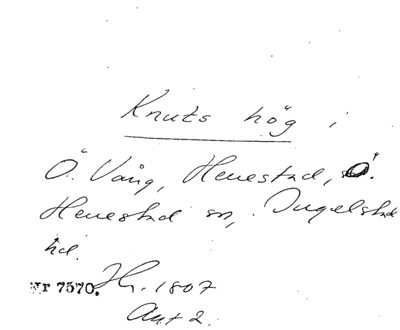 Knuts hög i
Ö. Vång, Herrestad, Ö.
Herrestad sn, Ingelstad
hd.
Nr 7570. Hr. 1807
Ant 2.